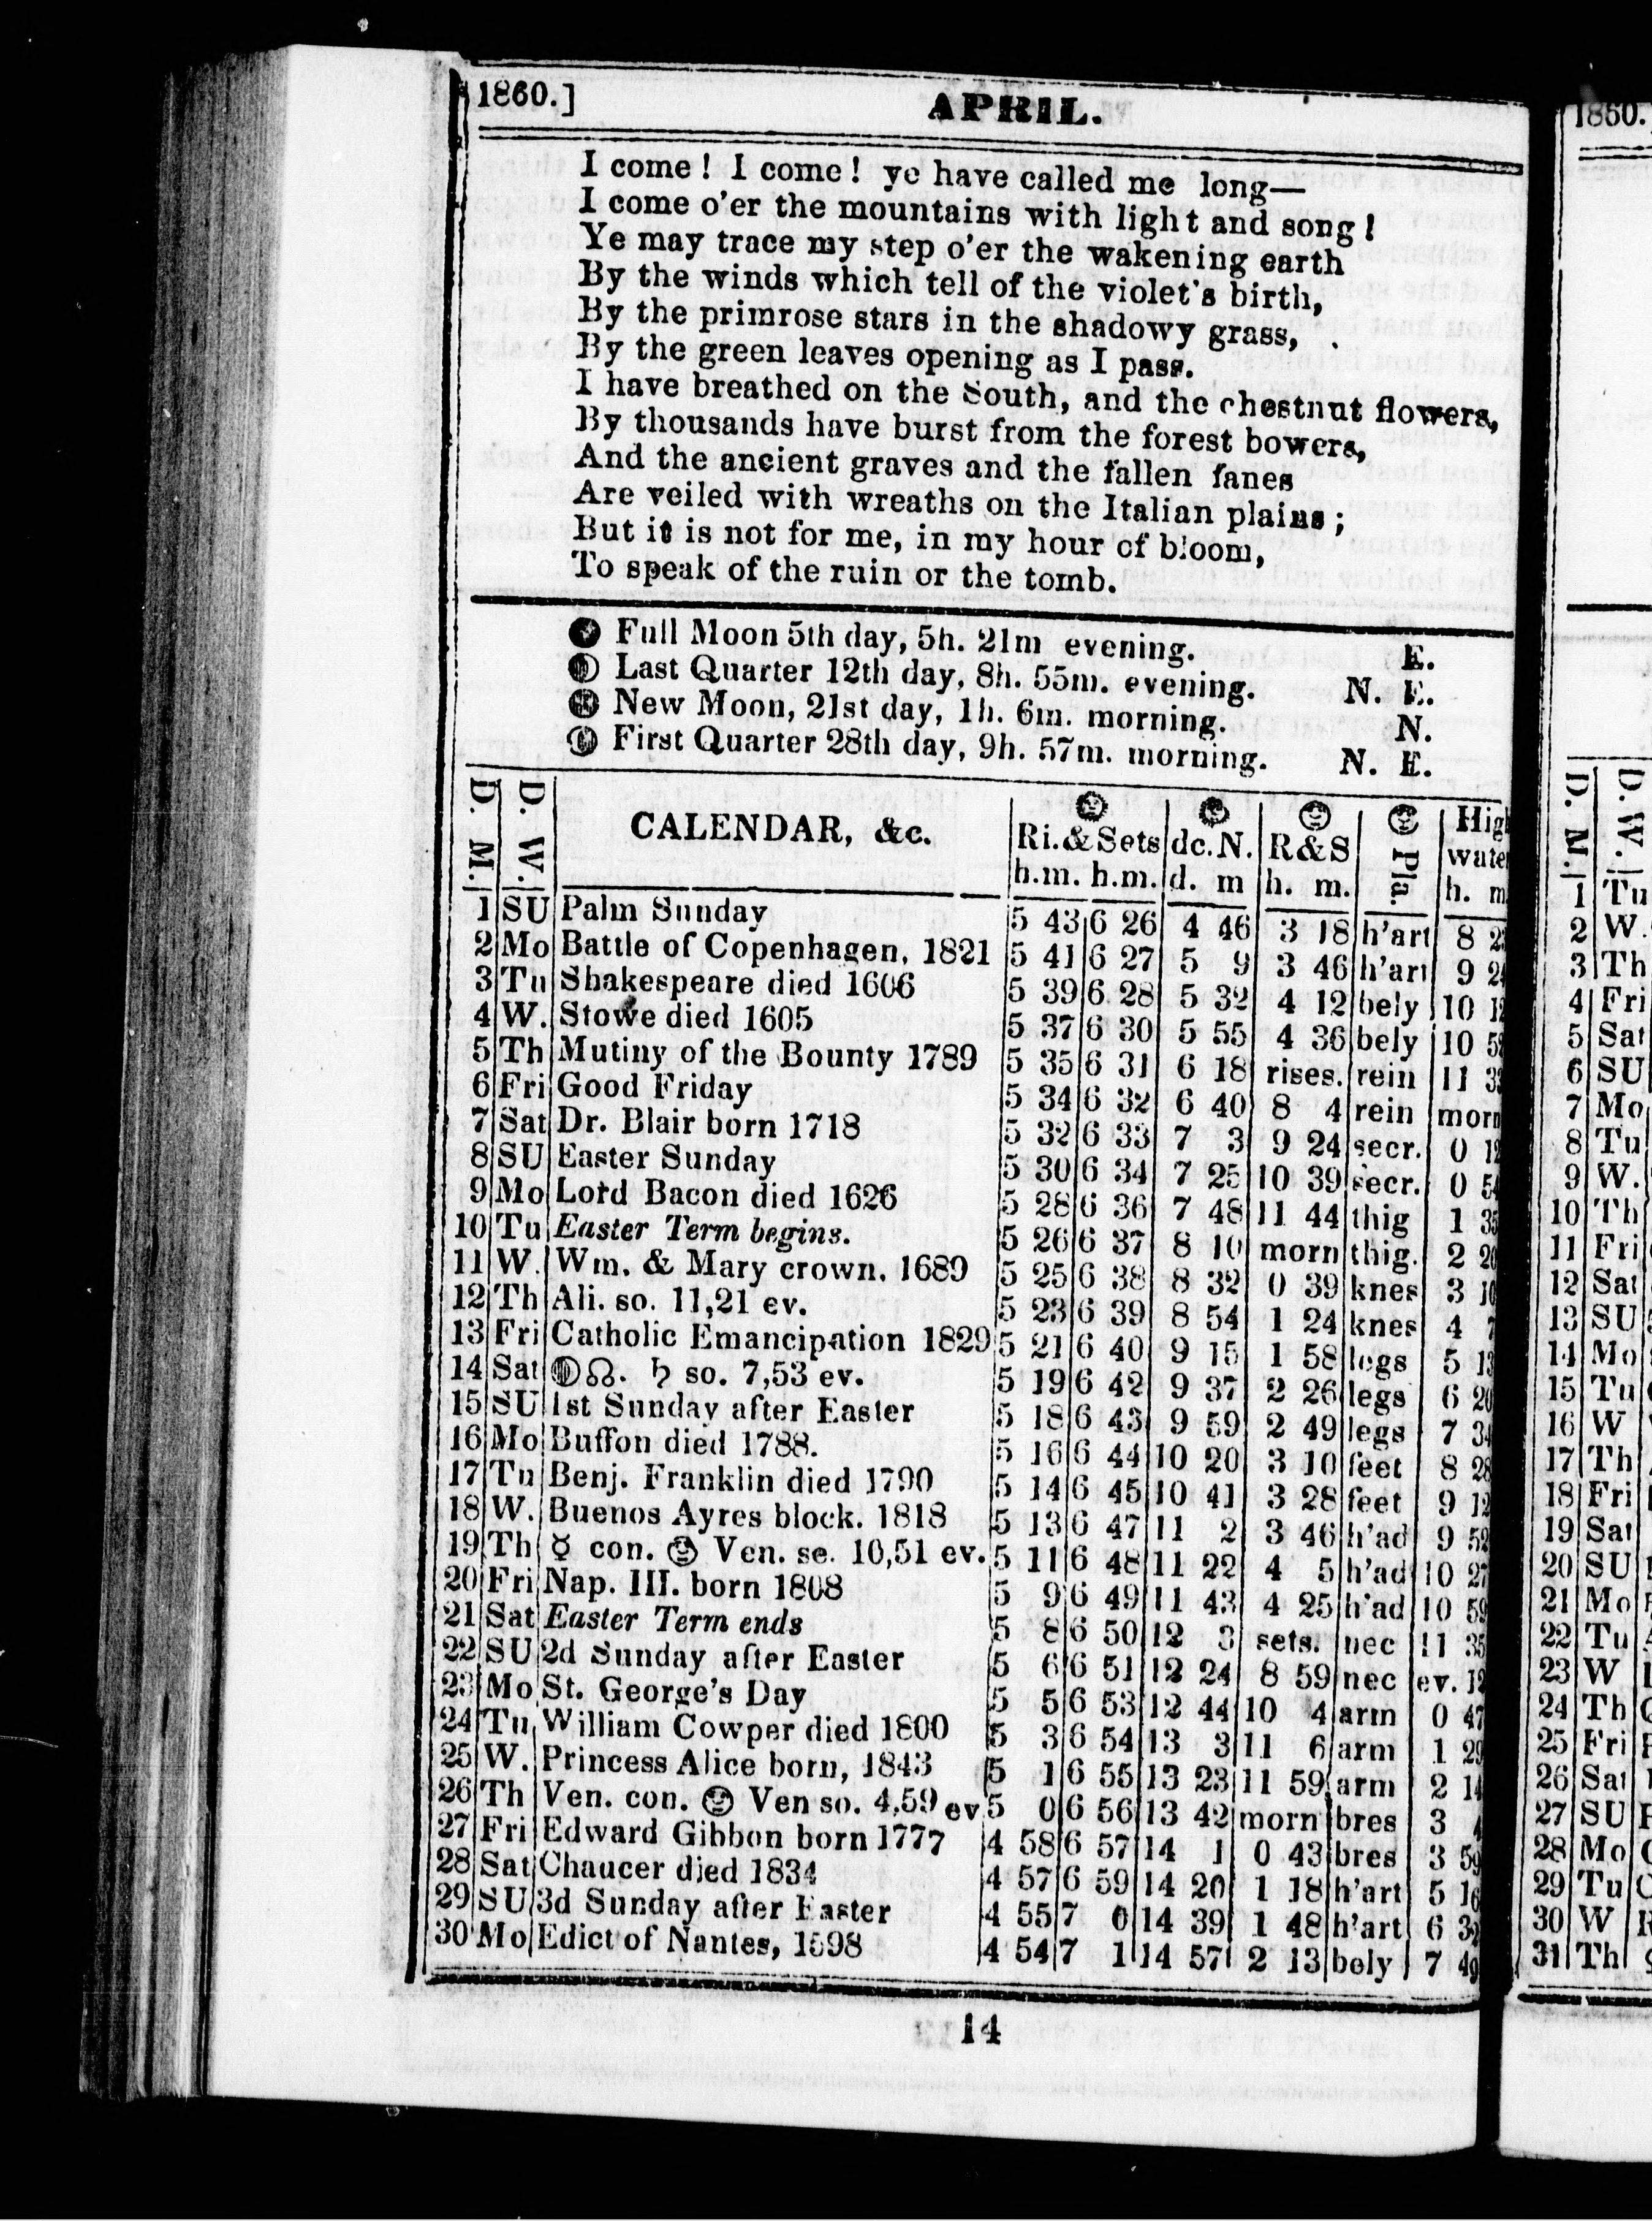 1860.]
APRIL.
I come! I come! ye have called me long—
I come o'er the mountains with light and song!
Ye may trace my step o'er the wakening earth
By the winds which tell of the violet's birth,
By the primrose stars in the shadowy grass,
By the green leaves opening as I pass.
I have breathed on the South, and the chestnut flowers,
By thousands have burst from the forest bowers,
And the ancient graves and the fallen fanes
Are veiled with wreaths on the Italian plains;
But it is not for me, in my hour of bloom,
To speak of the ruin or the tomb.
Full Moon 5th day, 5h. 21m evening. E.
Last Quarter 12th day, 8h. 55m. evening. N. E.
New Moon, 21st day, 1h. 6m. morning. N.
First Quarter 28th day, 9h. 57m. morning. N. E.
D. M. D. W. CALENDAR, &c. Ri.&Sets dc.N. R&S Pla. High water
h.m. h.m. d. m h. m. h. m
1 SU Palm Sunday 5 43 6 26 4 46 3 18 h'art 8
2 Mo Battle of Copenhagen, 1821 5 41 6 27 5 9 3 46 h'art 9
3 Tu Shakespeare died 1606 5 39 6 28 5 32 4 12 bely 10
4 W. Stowe died 1605 5 37 6 30 5 55 4 36 bely 10
5 Th Mutiny of the Bounty 1789 5 35 6 31 6 18 rises. rein 11
6 Fri Good Friday 5 34 6 32 6 40 8 4 rein morn
7 Sat Dr. Blair born 1718 5 32 6 33 7 3 9 24 secr. 0
8 SU Easter Sunday 5 30 6 34 7 25 10 39 secr. 0 54
9 Mo Lord Bacon died 1626 5 28 6 36 7 48 11 44 thig 1 35
10 Tu Easter Term begins. 5 26 6 37 8 10 morn thig. 2 20
11 W. Wm. & Mary crown. 1689 5 25 6 38 8 32 0 39 knes 3 10
12 Th Ali. so. 11,21 ev. 5 23 6 39 8 54 1 24 knes 4 7
13 Fri Catholic Emancipation 1829 5 21 6 40 9 15 1 58 legs 5 13
14 Sat ☊. ♄ so. 7,53 ev. 5 19 6 42 9 37 2 26 legs 6 20
15 SU 1st Sunday after Easter 5 18 6 43 9 59 2 49 legs 7
16 Mo Buffon died 1788. 5 16 6 44 10 20 3 10 feet 8 28
17 Tu Benj. Franklin died 1790 5 14 6 45 10 41 3 28 feet 9 12
18 W. Buenos Ayres block. 1818 5 13 6 47 11 2 3 46 h'ad 9 52
19 Th ☿ con. Ven. se. 10,51 ev. 5 11 6 48 11 22 4 5 h'ad 10 27
20 Fri Nap. III. born 1808 5 9 6 49 11 43 4 25 h'ad 10 59
21 Sat Easter Term ends 5 8 6 50 12 3 sets. nec 11 35
22 SU 2d Sunday after Easter 5 6 6 51 12 24 8 59 nec ev. 12
23 Mo St. George's Day 5 5 6 53 12 44 10 4 arm 0 47
24 Tu William Cowper died 1800 5 3 6 54 13 3 11 6 arm 1 29
25 W. Princess Alice born, 1843 5 1 6 55 13 23 11 59 arm 2 14
26 Th Ven. con. Ven so. 4,59 ev 5 0 6 56 13 42 morn bres 3
27 Fri Edward Gibbon born 1777 4 58 6 57 14 1 0 43 bres 3 59
28 Sat Chaucer died 1834 4 57 6 59 14 20 1 18 h'art 5 16
29 SU 3d Sunday after Easter 4 55 7 0 14 39 1 48 h'art 6 32
30 Mo Edict of Nantes, 1598 4 54 7 1 14 57 2 13 bely 7 49
14
1860.
D. M. D. W.
1 Tu
2 W.
3 Th
4 Fri
5 Sat
6 SU
7 Mo
8 Tu
9 W.
10 Th
11 Fri
12 Sat
13 SU
14 Mo
15 Tu
16 W
17 Th
18 Fri
19 Sat
20 SU
21 Mo
22 Tu
23 W
24 Th
25 Fri
26 Sat
27 SU
28 Mo
29 Tu
30 W
31 Th